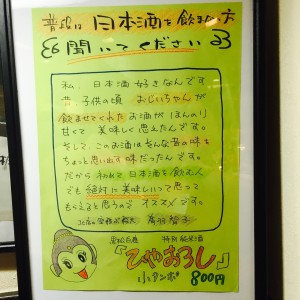 普段は日本酒を飲まない方
聞いてください
私、日本酒好きなんです
昔子供の頃 おじいちゃんが
飲ませてくれたお酒がほんのり
甘くて 美味しく思えたんです。
そして、このお酒はそんな昔の味を
ちょっと思い出す味だったんです。
だから初めて日本酒を飲む人
でも絶対に美味しいって思って
もらえると思うので オススメです。
特別純米酒
「ひやおろし」
800円